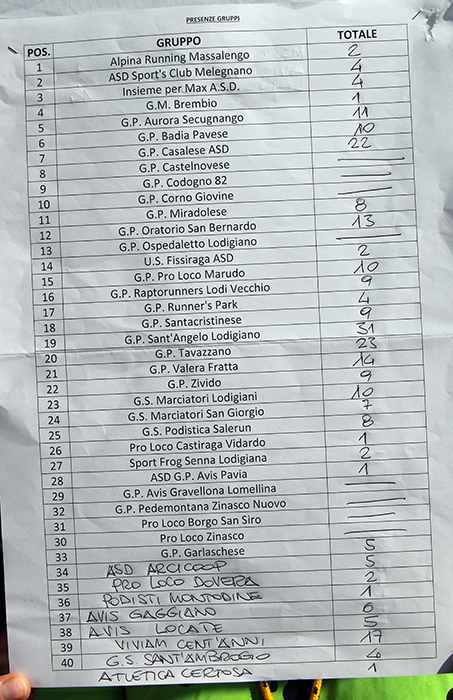 PRESENZE GRUPPI
POS. GRUPPO TOTALE
1 Alpina Running Massalengo 2
2 ASD Sport's Club Melegnano 4
3 Insieme per Max A.S.D. 4
4 G.M. Brembio 1
5 G.P. Aurora Secugnango 11
6 G.P. Badia Pavese 10
7 G.P. Casalese ASD 22
8 G.P. Castelnovese —
9 G.P. Codogno 82 —
10 G.P. Corno Giovine —
11 G.P. Miradolese 8
12 G.P. Oratorio San Bernardo 13
13 G.P. Ospedaletto Lodigiano —
14 U.S. Fissiraga ASD 2
15 G.P. Pro Loco Marudo 10
16 G.P. Raptorunners Lodi Vecchio 9
17 G.P. Runner's Park 4
18 G.P. Santacristinese 9
19 G.P. Sant'Angelo Lodigiano 31
20 G.P. Tavazzano 23
21 G.P. Valera Fratta 14
22 G.P. Zivido 9
23 G.S. Marciatori Lodigiani 10
24 G.S. Marciatori San Giorgio 7
25 G.S. Podistica Salerun 8
26 Pro Loco Castiraga Vidardo 1
27 Sport Frog Senna Lodigiana 2
28 ASD G.P. Avis Pavia 1
29 G.P. Avis Gravellona Lomellina —
32 G.P. Pedemontana Zinasco Nuovo —
31 Pro Loco Borgo San Siro —
30 Pro Loco Zinasco —
33 G.P. Garlaschese 5
34 ASD ARCICOOP 5
35 PRO LOCO DOVERA 2
36 PODISTI MONTODINE 1
37 AVIS GAGGIANO 6
38 AVIS LOCATE 5
39 VIVIAM CENT'ANNI 17
40 G.S. SANT'AMBROGIO 4
ATLETICA CERTOSA 1